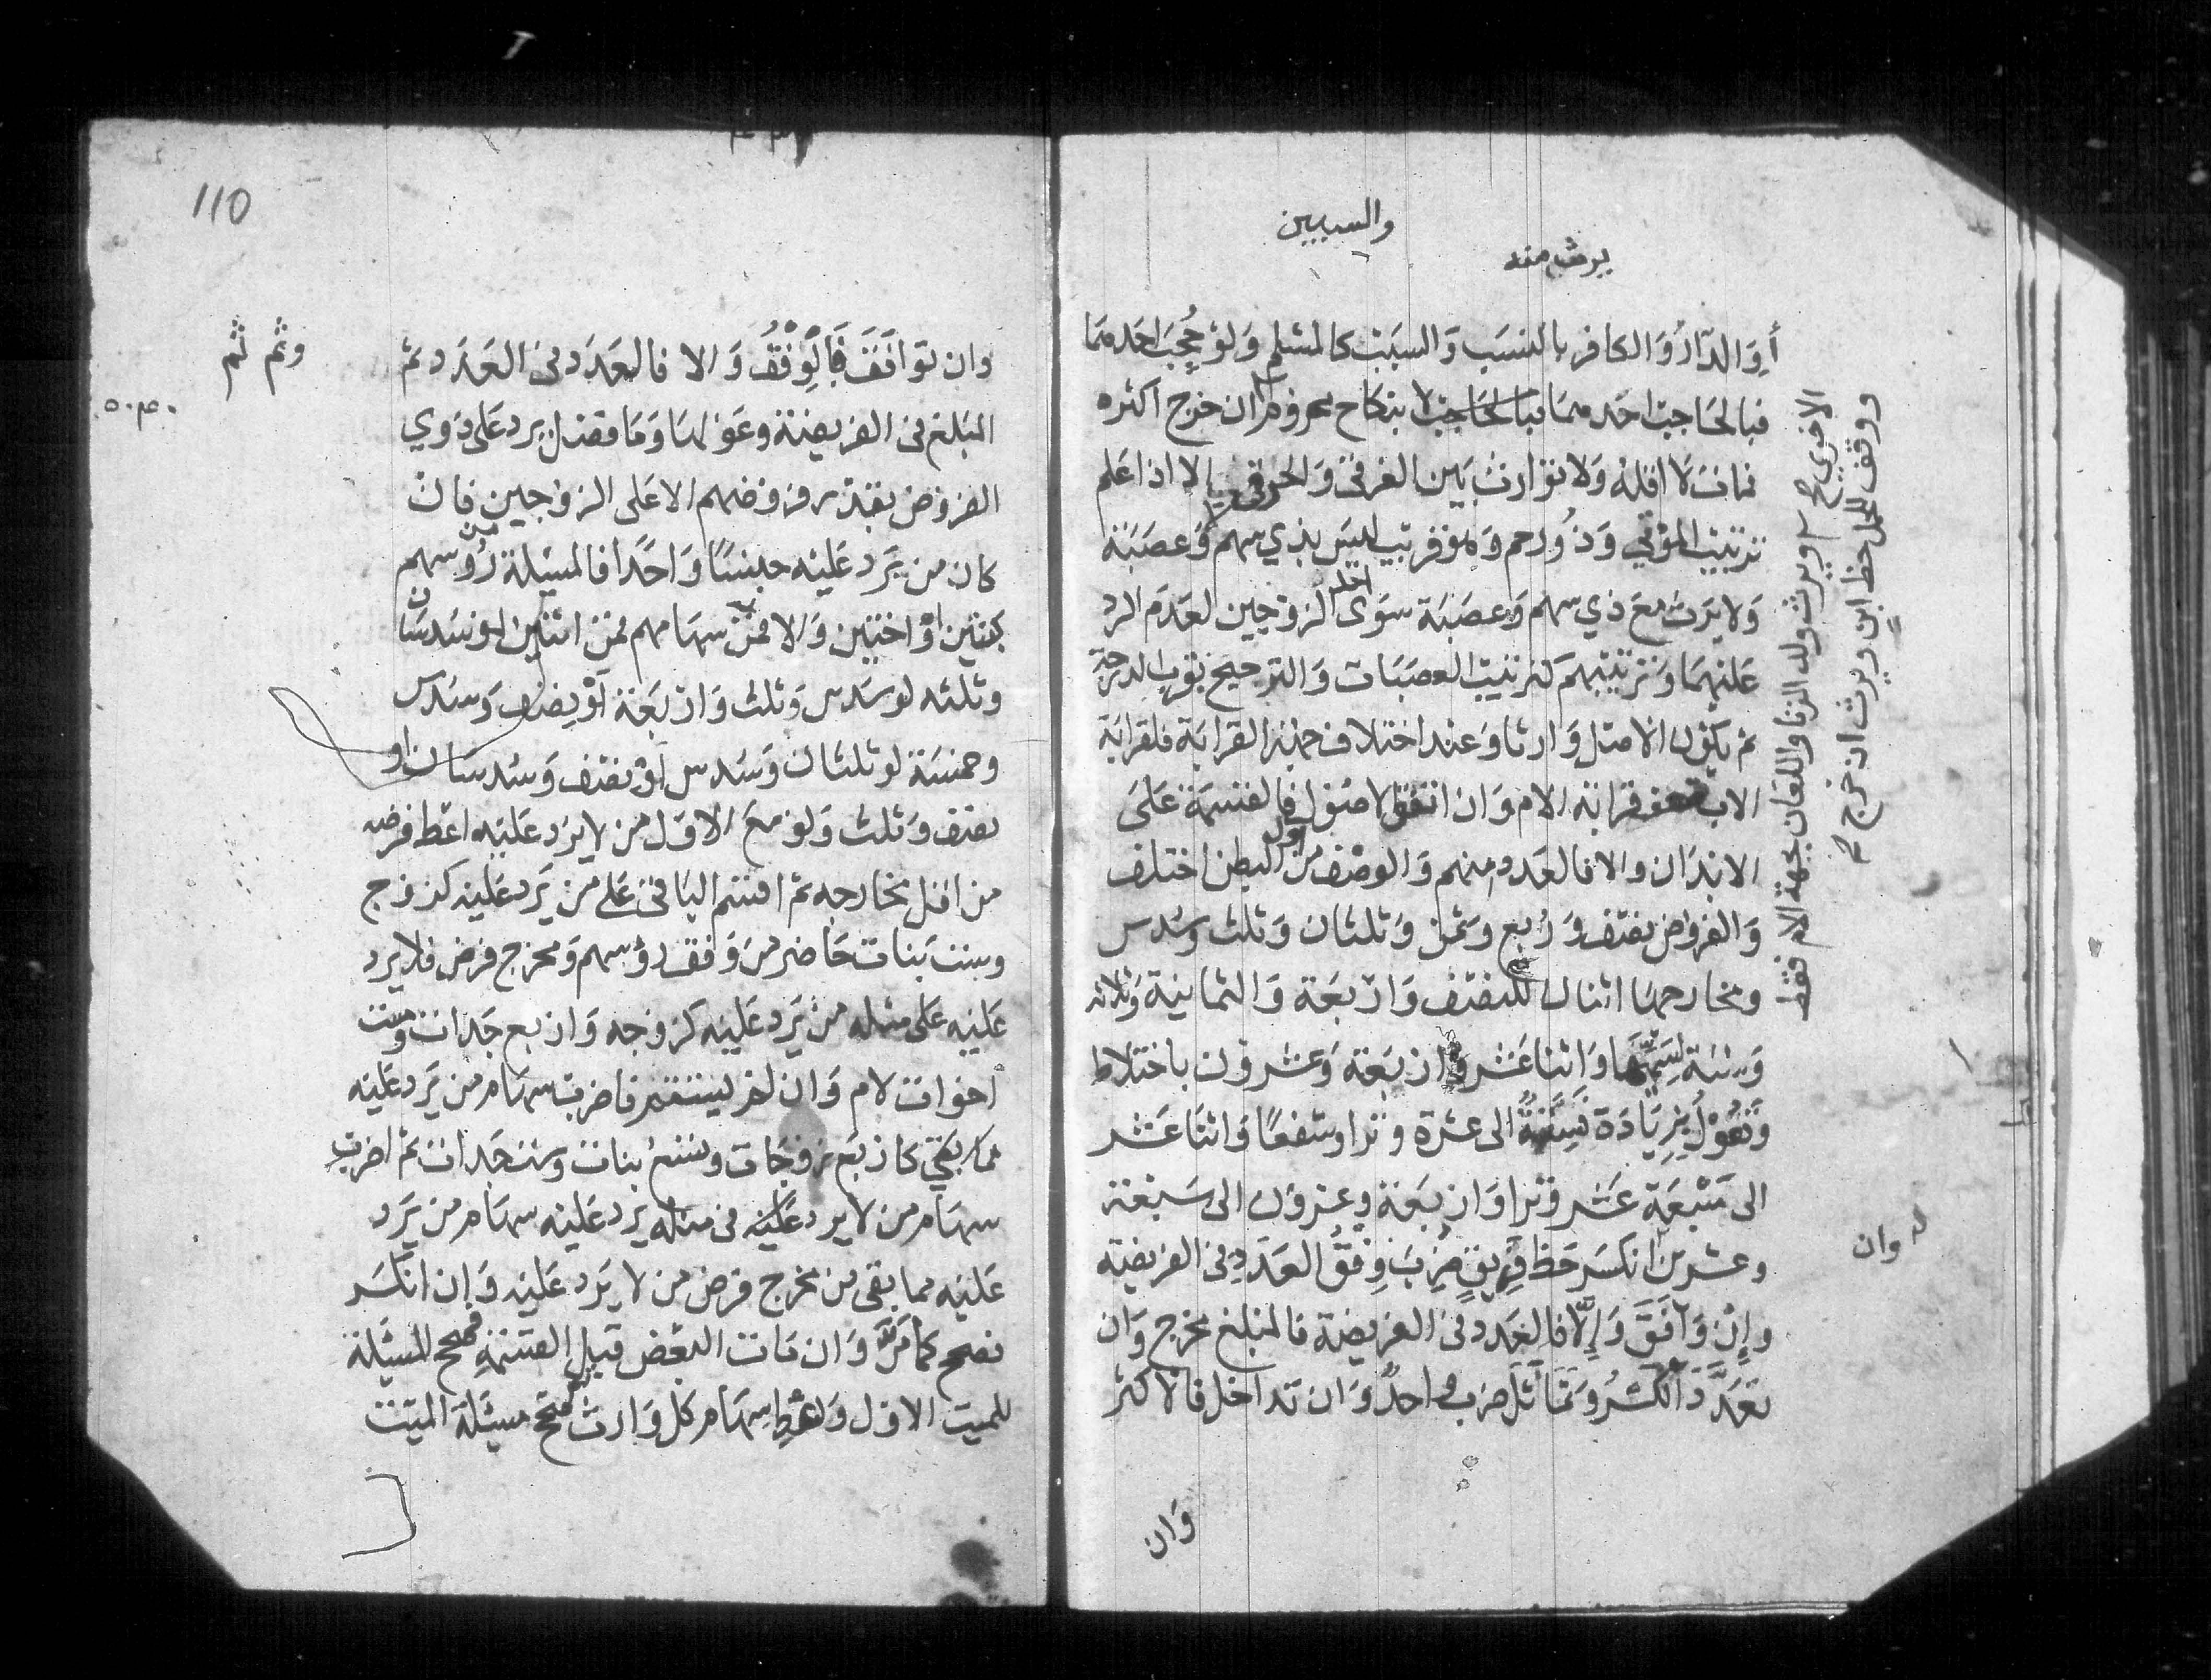 والسببين
يرث منه
أوِ الدّار وَالكافر بالنسَب وَالسبَب كالمسْلم وَلوْ حُجِبَ احدهمَا
فبالحَاجب لا بنكاح محرم وان خرج اكثره
فمات لا اقله وَلا توارث بَين الغرقى وَالحرقى الا اذا علم
ترتيب الموْتى وَذو رحم وَهو قريب ليسَ بذي سهم وَعصَبَة
وَلا يَرث معَ ذي سهم وَعصَبَة سوَى احد الزوجين لعدَم الرد
عَليهمَا وَترتيبهم كترتيب العصَبَات وَالترجيح بقرب الدرجة
ثم بكوْن الاصْل وَارثا وَعند اختلاف جهة القرابَة فلقرابَة
الاب ضعف قرابة الام وَان اتفق الاصُول فالقسمَة عَلى
الابدَان والا فالعدد منهم وَالوصْف من بطن اختلف
وَالفروض نصْف وَرُبع وَثمْن وَثلثان وَثلث وَسُدس
ومخارجهَا اثنان للنصْف وَارْبعَة وَالثمانية وَثلاثه
وَستة لسَميّهَا وَاثنا عَشر وَارْبَعَة وَعشرون باختلاط
وَتعُوْل بزيَادَة فستةٌ الى عشرة وترا وَشفعًا وَاثنَا عَشر
الى سَبْعَة عَشر وَترا وَارْبَعَة وعشرون الى سَبْعَة
وعشرين وَان انكسَر حَظ فَرِيقٍ ضُرِبَ وِفْقُ العَدَدِ في الفريضَة
وإنْ وَافَقَ وَإلّا فالعَدد في الفريضَة فالمبْلغ مخرج وَان
تعَدَّدَ الكسْرُ وَتمَاثلَ ضرب وَاحدٌ وَان تداخل فالاكثر
وَان
الاخرى ويرث ولد الزنا واللعَان بجهة الام فقط
ووقف للحمل حظ ابن ويرث ان خرج
وان
110
وان توَافَقَ فَالْوِفْقُ وَالا فالعَدَد في العَدَد ثم
المبْلغ في الفريضَة وعَوْلهَا وَمَا فضَل يرد عَلى ذوي
الفروض بقدر فروضهم الا عَلى الزوْجين فان
كان من يَرد عَليْه جنسًا وَاحدًا فالمسْئلة من رؤسهم
كبنتين اوْ اختين وَالا فمن سهَامهم فمن اثنين لو سُدسَان
وثلثه لو سُدس وَثلث وَارْبَعَة لوْ نصْف وَسُدس
وخمسَة لو ثلثان وَسُدس اوْ نصْف وَسُدسَان او
نصْف وَثلث وَلوْ معَ الاوّل من لا يَرد عَليه اعْط فرضه
من اقل مخارجه ثم اقسم البَاقي عَلى من يَرد عَليه كزوْج
وثلاث بنات وَان وَافق رؤسهم وَمخرج فرض من لا يرد
عَليه عَلى مسئلة من يَرد عَليه كزوجه وَارْبع جَدات وست
اخوات لام وَان لم يستقم فاضرب سهَام من يَرد عَليه
فيما بقي كارْبع زوجَات وتسْع بنات وَست جَدات ثم اضرب
سهَام من لا يرد عَليْه في مسئلة من يرد عَليه وسهَام من يَرد
عَليه فيما بقي من مخرج فرض من لا يَرد عَليه وَإن انكسَر
تصح كما مَرّ وَان مَات البعْض قبل القسمَة فصحح المسْئلة
للميت الاول وَاعْط سهَام كل وَارث ثم صحح مسْئلة الميّت
وثم ثم